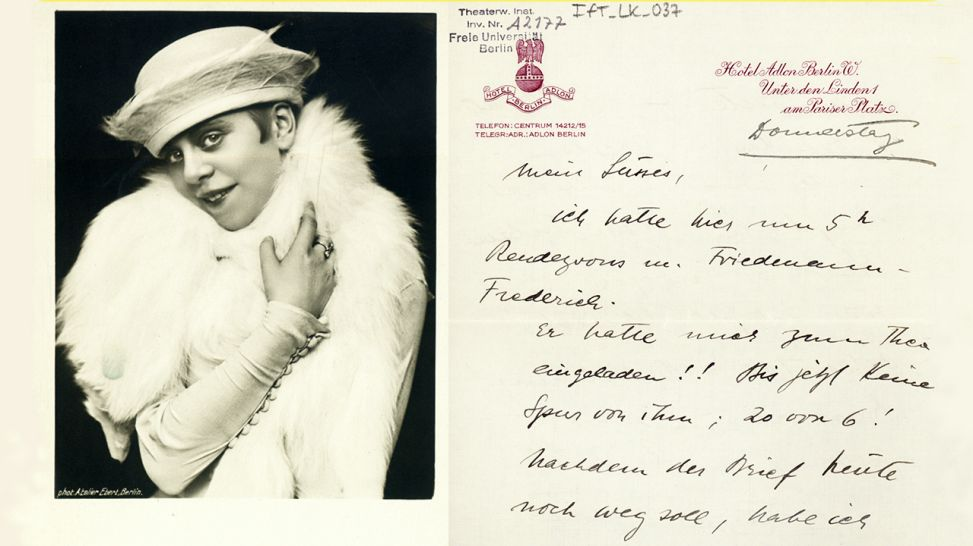 phot. Atelier Ebert, Berlin.
Theaterw. Inst.
Inv. Nr. A2177
Freie Universität
Berlin
IfT_LK_037
HOTEL ADLON
BERLIN
TELEFON: CENTRUM 14212/15
TELEGR.: ADR.: ADLON BERLIN
Hotel Adlon Berlin W.
Unter den Linden 1
am Pariser Platz.
Donnerstag
Mein Süsses,
ich hatte hier um 5 h
Rendezvous m. Friedmann-
Frederich.
Er hatte mich zum Thee
eingeladen!! Bis jetzt keine
Spur von ihm; 20 vor 6!
Nachdem der Brief heute
noch weg soll, habe ich